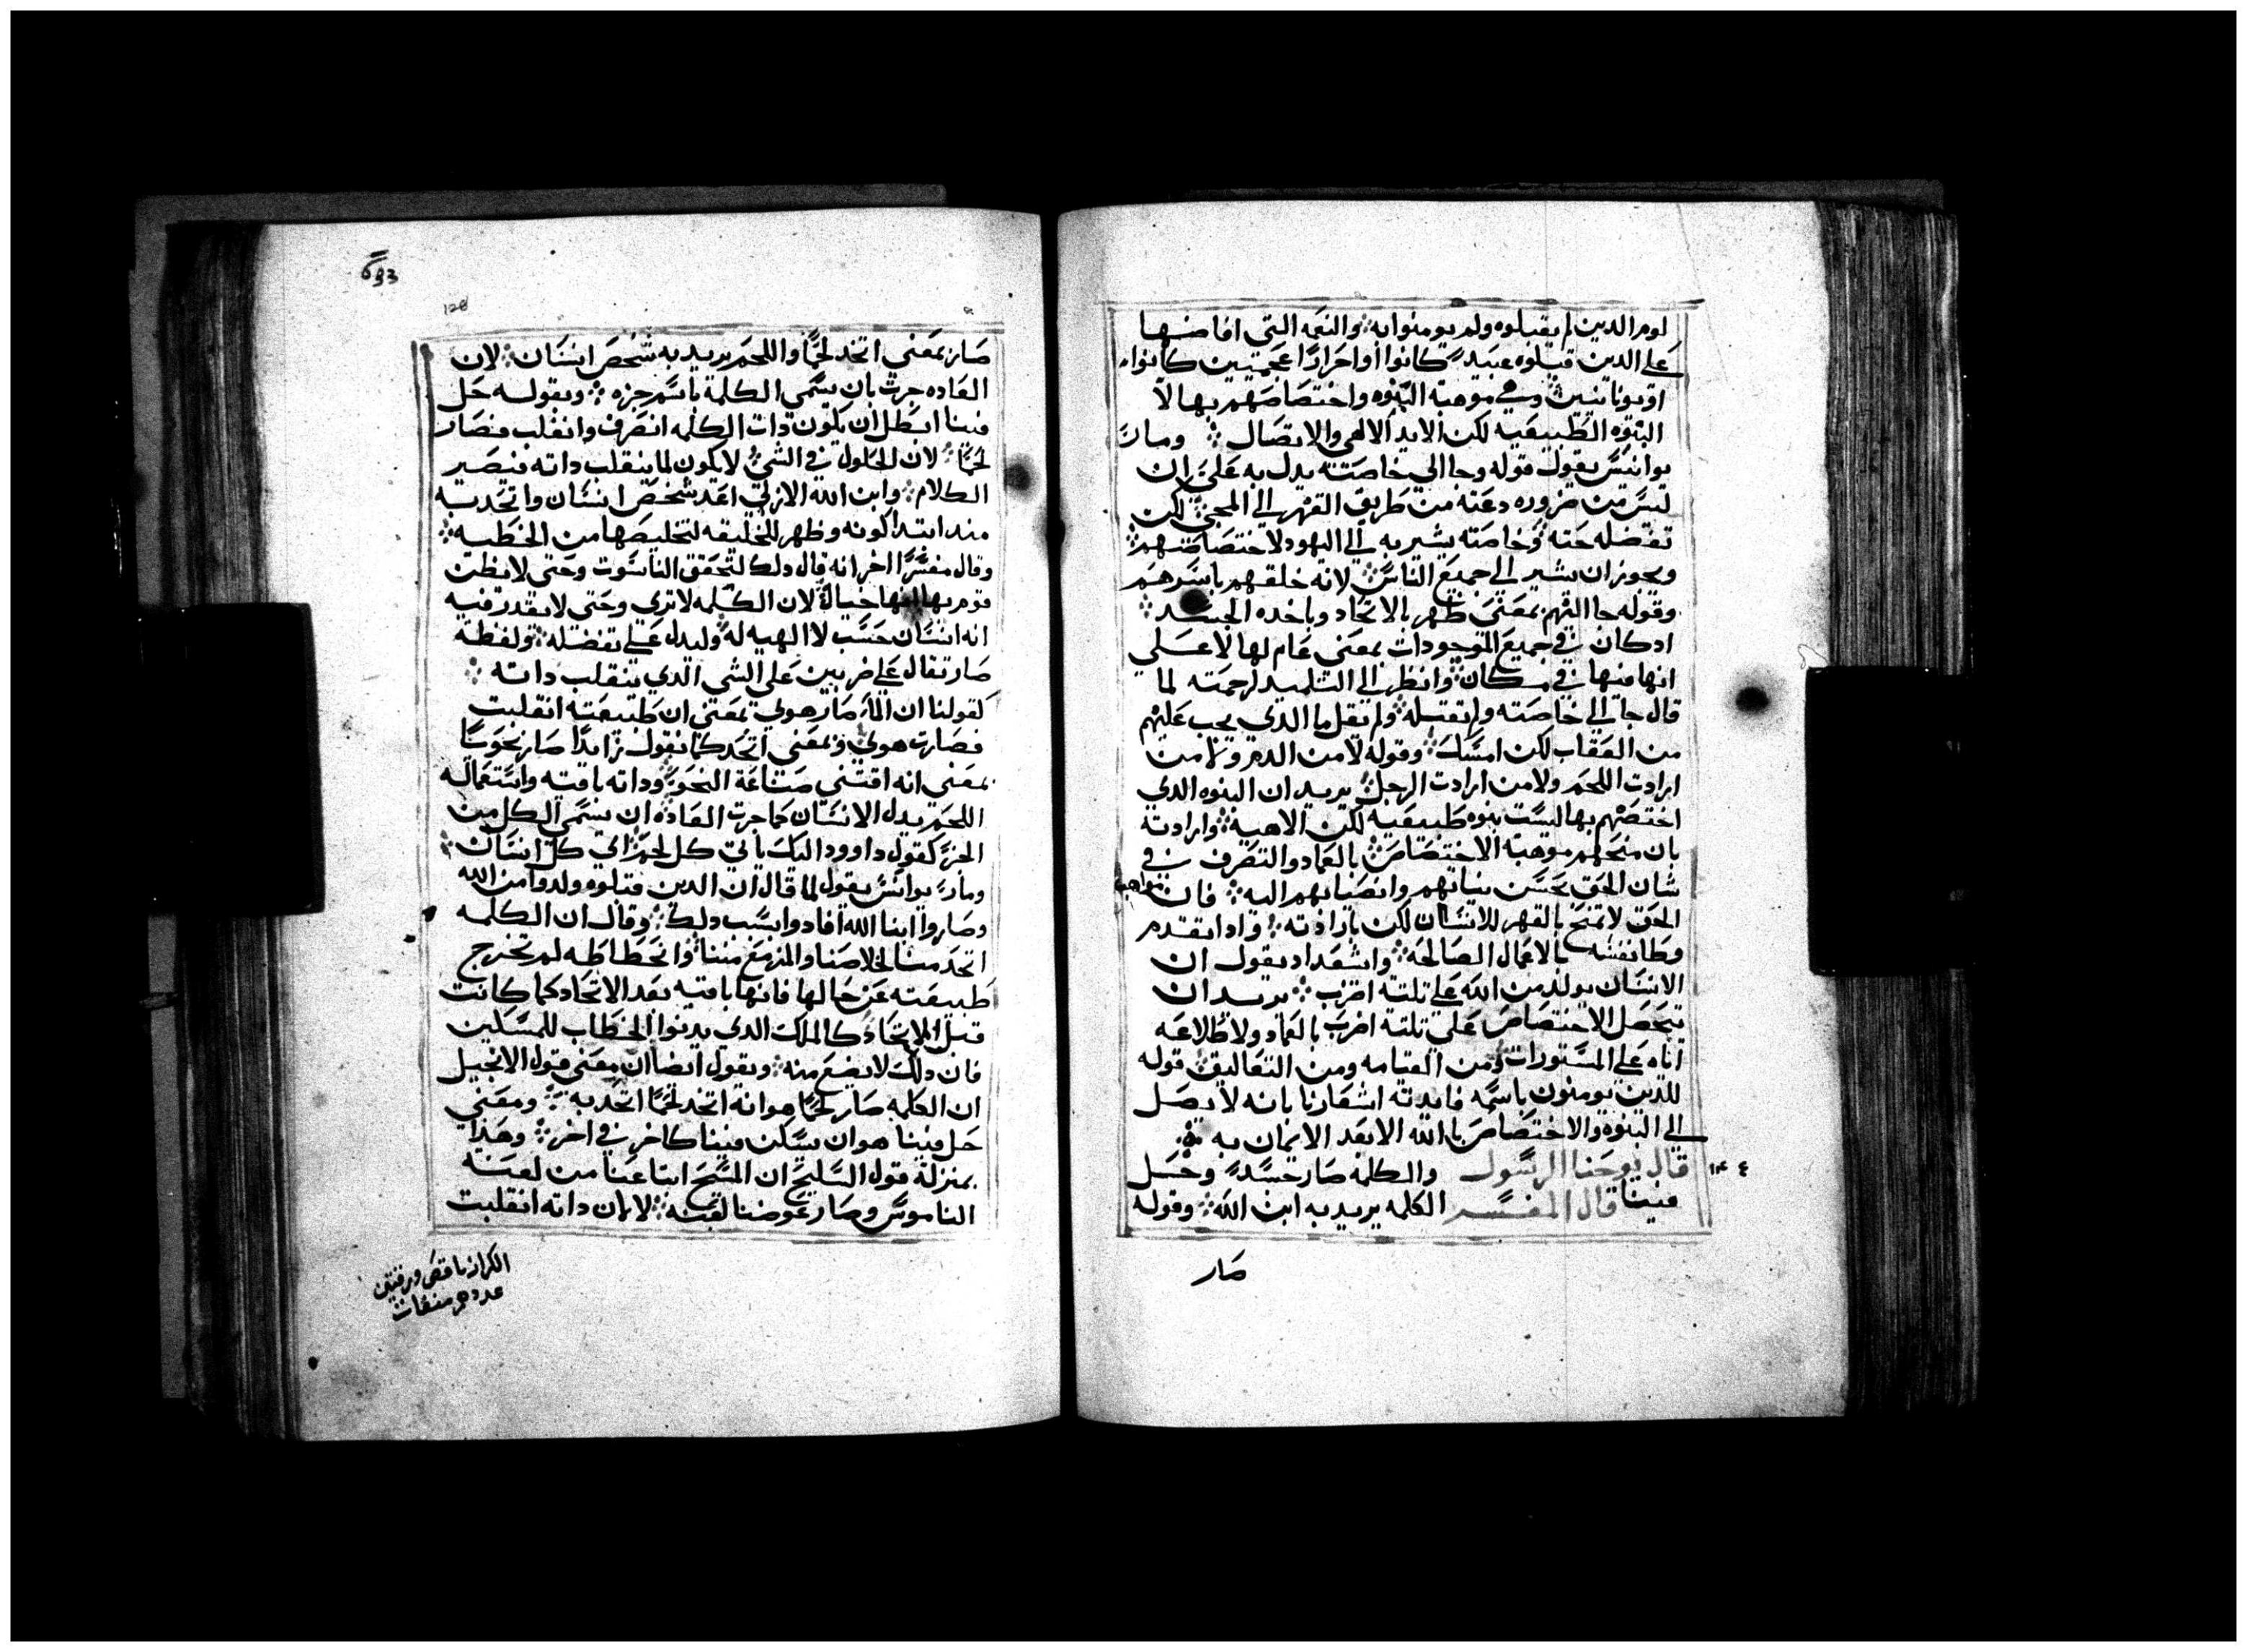 لوم الدين لم يقبلوه ولم يومنوا به والنعمه التي افاضنها
على الدين قبلوه عبيد كانوا او احرارا عجميين كانوا
او يونانيين وفي موهبة البنوه واختصاصهم بها لا
البنوه الطبيعيه لكن الايد الالهي والاتصال ومار
يوانيس يقول قوله وجا الي خاصته يدل به على ان
ليس من ضروره دعته من طريق القهر الي المجي لكن
تفضله حته وخاصته يشير به الي اليهود لاختصاصهم
ويجوز ان يشير الي جميع الناس لانه خلقهم باسرهم
وقوله جا اليهم بمعنى ظهر بالاتحاد وباخده الجسد
ادكان في جميع الموجودات بمعني عام لها لا علي
انها منها في مكان وانظر الي التلميد لرحمته لما
قال جا الي خاصته ولم تقبله ولم يقل ما الدي يجب عليهم
من العقاب لكن امسك وقوله لا من الدم ولا من
ارادت اللحم ولا من ارادت الرجل يريد ان البنوه الدي
اختصهم بها ليست بنوه طبيعيه لكن الاهية وارادته
بان منحهم موهبة الاختصاص بالعماد والتصرف في
شان الحق بحسن نياتهم وانصبابهم اليه فان مواهب
الحق لا تمنح بالقهر للانسان لكن بارادته واد اتقدم
وطا نفسه بالاعمال الصالحه وايشعداد يقول ان
الانسان يولد من الله على تلته اضرب يريد ان
يتحصل الاختصاص علي تلتة اضرب بالعماد ولاطلاعه
اياه على المستورات ومن القيامه ومن التعاليق قوله
للدين يومنون باسمه فايدته اشعارنا بانه لا يصل
الي البنوه والاختصاص بالله الا بعد الايمان به
قال يوحنا الرسول والكلمه صار جسد وحل
فينا قال المفسر الكلمه يريد به ابن الله وقوله
١٤ ٤
صار
693
128
صار بمعني اتخد لحما واللحم يريد به شخص انسان لان
العاده جرت بان يسمي الكلمة باسم جزه وبقوله حل
فينا ابطل ان يكون دات الكلمه انصرف وانقلب فصار
لحما لان الحلول في الشي لا يكون لما ينقلب داته فيصير
الكلام وابن الله الازلي اعد شخص انسان واتحد به
مند ابتدا كونه وظهر للخليقه لتخليصها من الخطيه
وقال مفسرا اخر انه قال دلك لتحقق الناسوت وحتى لا يظن
قوم بها انها خيالا لان الكلمه لا تري وحتى لا يقدر فيه
انه انسان حسب لا الهيه له وليدل على تفضله ولفظة
صار تقال على ضربين على الشي الدي تنقلب داته
كقولنا ان الما صار هوي بمعني ان طبيعته انقلبت
فصارت هوي وبمعني اتخد كما نقول زايدا صار نحويا
بمعني انه اقتني صناعة النحو وداته باقيه واستعماله
اللحم بدل الانسان كما جرت العاده ان يسمي الكل من
الجز كقول داوود اليك ياتي كل لحم اي كل انسان
ومار يوانيس يقول لما قال ان الدين قبلوه ولدوا من الله
وصاروا ابنا الله افادوا بسبب دلك وقال ان الكلمه
اتحد منا لخلاصنا والمزمع مننا وانحطاطه لم تخرج
طبيعته عن حالها فانها باقيه بعد الاتحاد كما كانت
قبل الاتحاد كالملك الدي يدنوا الخطاب للمسكين
فان دلك لا يضع منه ويقول ايضا ان معنى قول الانجيل
ان الكلمه صار لحما هو انه اتخد لحما اتحد به ومعني
حل فينا هو ان يسكن فيننا كاخر في اخر وهدا
بمنزلة قول السليح ان المسيح ابتاعنا من لعنة
الناموس وصار عوضنا لعنه لا بان داته انقلبت
الكراز ناقص ورقتين